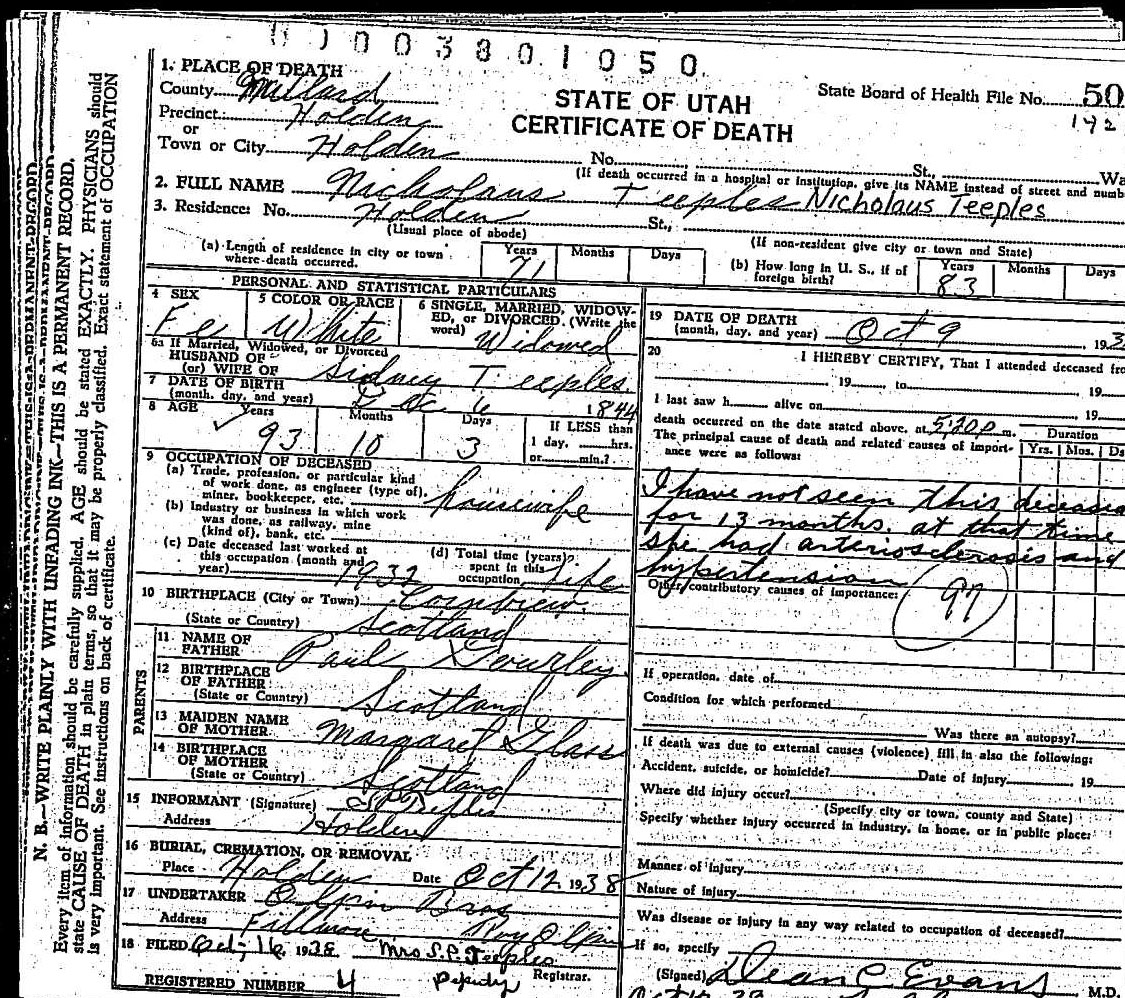 0 0 0 3 8 0 1 0 5 0
1. PLACE OF DEATH
County Millard
Precinct Holden
or
Town or City Holden No. St., Wa
STATE OF UTAH
CERTIFICATE OF DEATH
State Board of Health File No. 50
192
(If death occurred in a hospital or institution, give its NAME instead of street and numb
2. FULL NAME Nicholaus Teeples Nicholaus Teeples
3. Residence: No. Holden St.,
(Usual place of abode)
(If non-resident give city or town and State)
(a) Length of residence in city or town where death occurred. Years 71 Months Days
(b) How long in U. S., if of foreign birth? Years 83 Months Days
PERSONAL AND STATISTICAL PARTICULARS
4 SEX Fe
5 COLOR OR RACE White
6 SINGLE, MARRIED, WIDOWED, or DIVORCED. (Write the word) Widowed
6a If Married, Widowed, or Divorced
HUSBAND OF
(or) WIFE OF Sidney Teeples
7 DATE OF BIRTH
(month, day, and year) Dec 6 1844
8 AGE Years 93 Months 10 Days 3 If LESS than
1 day, hrs.
or min.?
9 OCCUPATION OF DECEASED
(a) Trade, profession, or particular kind
of work done, as engineer (type of),
miner, bookkeeper, etc. housewife
(b) Industry or business in which work
was done, as railway, mine
(kind of), bank, etc.
(c) Date deceased last worked at
this occupation (month and
year) 1932
(d) Total time (years)
spent in this
occupation life
10 BIRTHPLACE (City or Town)
(State or Country) Scotland
PARENTS
11 NAME OF
FATHER Paul Gourley
12 BIRTHPLACE
OF FATHER
(State or Country) Scotland
13 MAIDEN NAME
OF MOTHER Margaret Glass
14 BIRTHPLACE
OF MOTHER
(State or Country) Scotland
15 INFORMANT (Signature) Teeples
Address Holden
16 BURIAL, CREMATION, OR REMOVAL
Place Holden Date Oct 12 1938
17 UNDERTAKER Olpin Bros
Address Fillmore Roy Olpin
18 FILED Oct, 16 1938 Mrs S.P. Teeples
Deputy Registrar.
REGISTERED NUMBER 4
19 DATE OF DEATH
(month, day, and year) Oct 9 193
20 I HEREBY CERTIFY, That I attended deceased fro
19 , to 19
I last saw h alive on 19
death occurred on the date stated above, at 5:20 p m.
The principal cause of death and related causes of importance were as follows:
Duration
Yrs. Mos. Ds
I have not seen this deceased
for 13 months. at that time
she had arteriosclerosis and
hypertension
Other contributory causes of importance: 97
If operation, date of
Condition for which performed
Was there an autopsy?
If death was due to external causes (violence) fill in also the following:
Accident, suicide, or homicide? Date of injury 19
Where did injury occur?
(Specify city or town, county and State)
Specify whether injury occurred in industry, in home, or in public place:
Manner of injury
Nature of injury
Was disease or injury in any way related to occupation of deceased?
If so, specify
(Signed) Dean C Evans M.D.
N. B.—WRITE PLAINLY WITH UNFADING INK—THIS IS A PERMANENT RECORD.
Every item of information should be carefully supplied. AGE should be stated EXACTLY. PHYSICIANS should
state CAUSE OF DEATH in plain terms, so that it may be properly classified. Exact statement of OCCUPATION
is very important. See instructions on back of certificate.